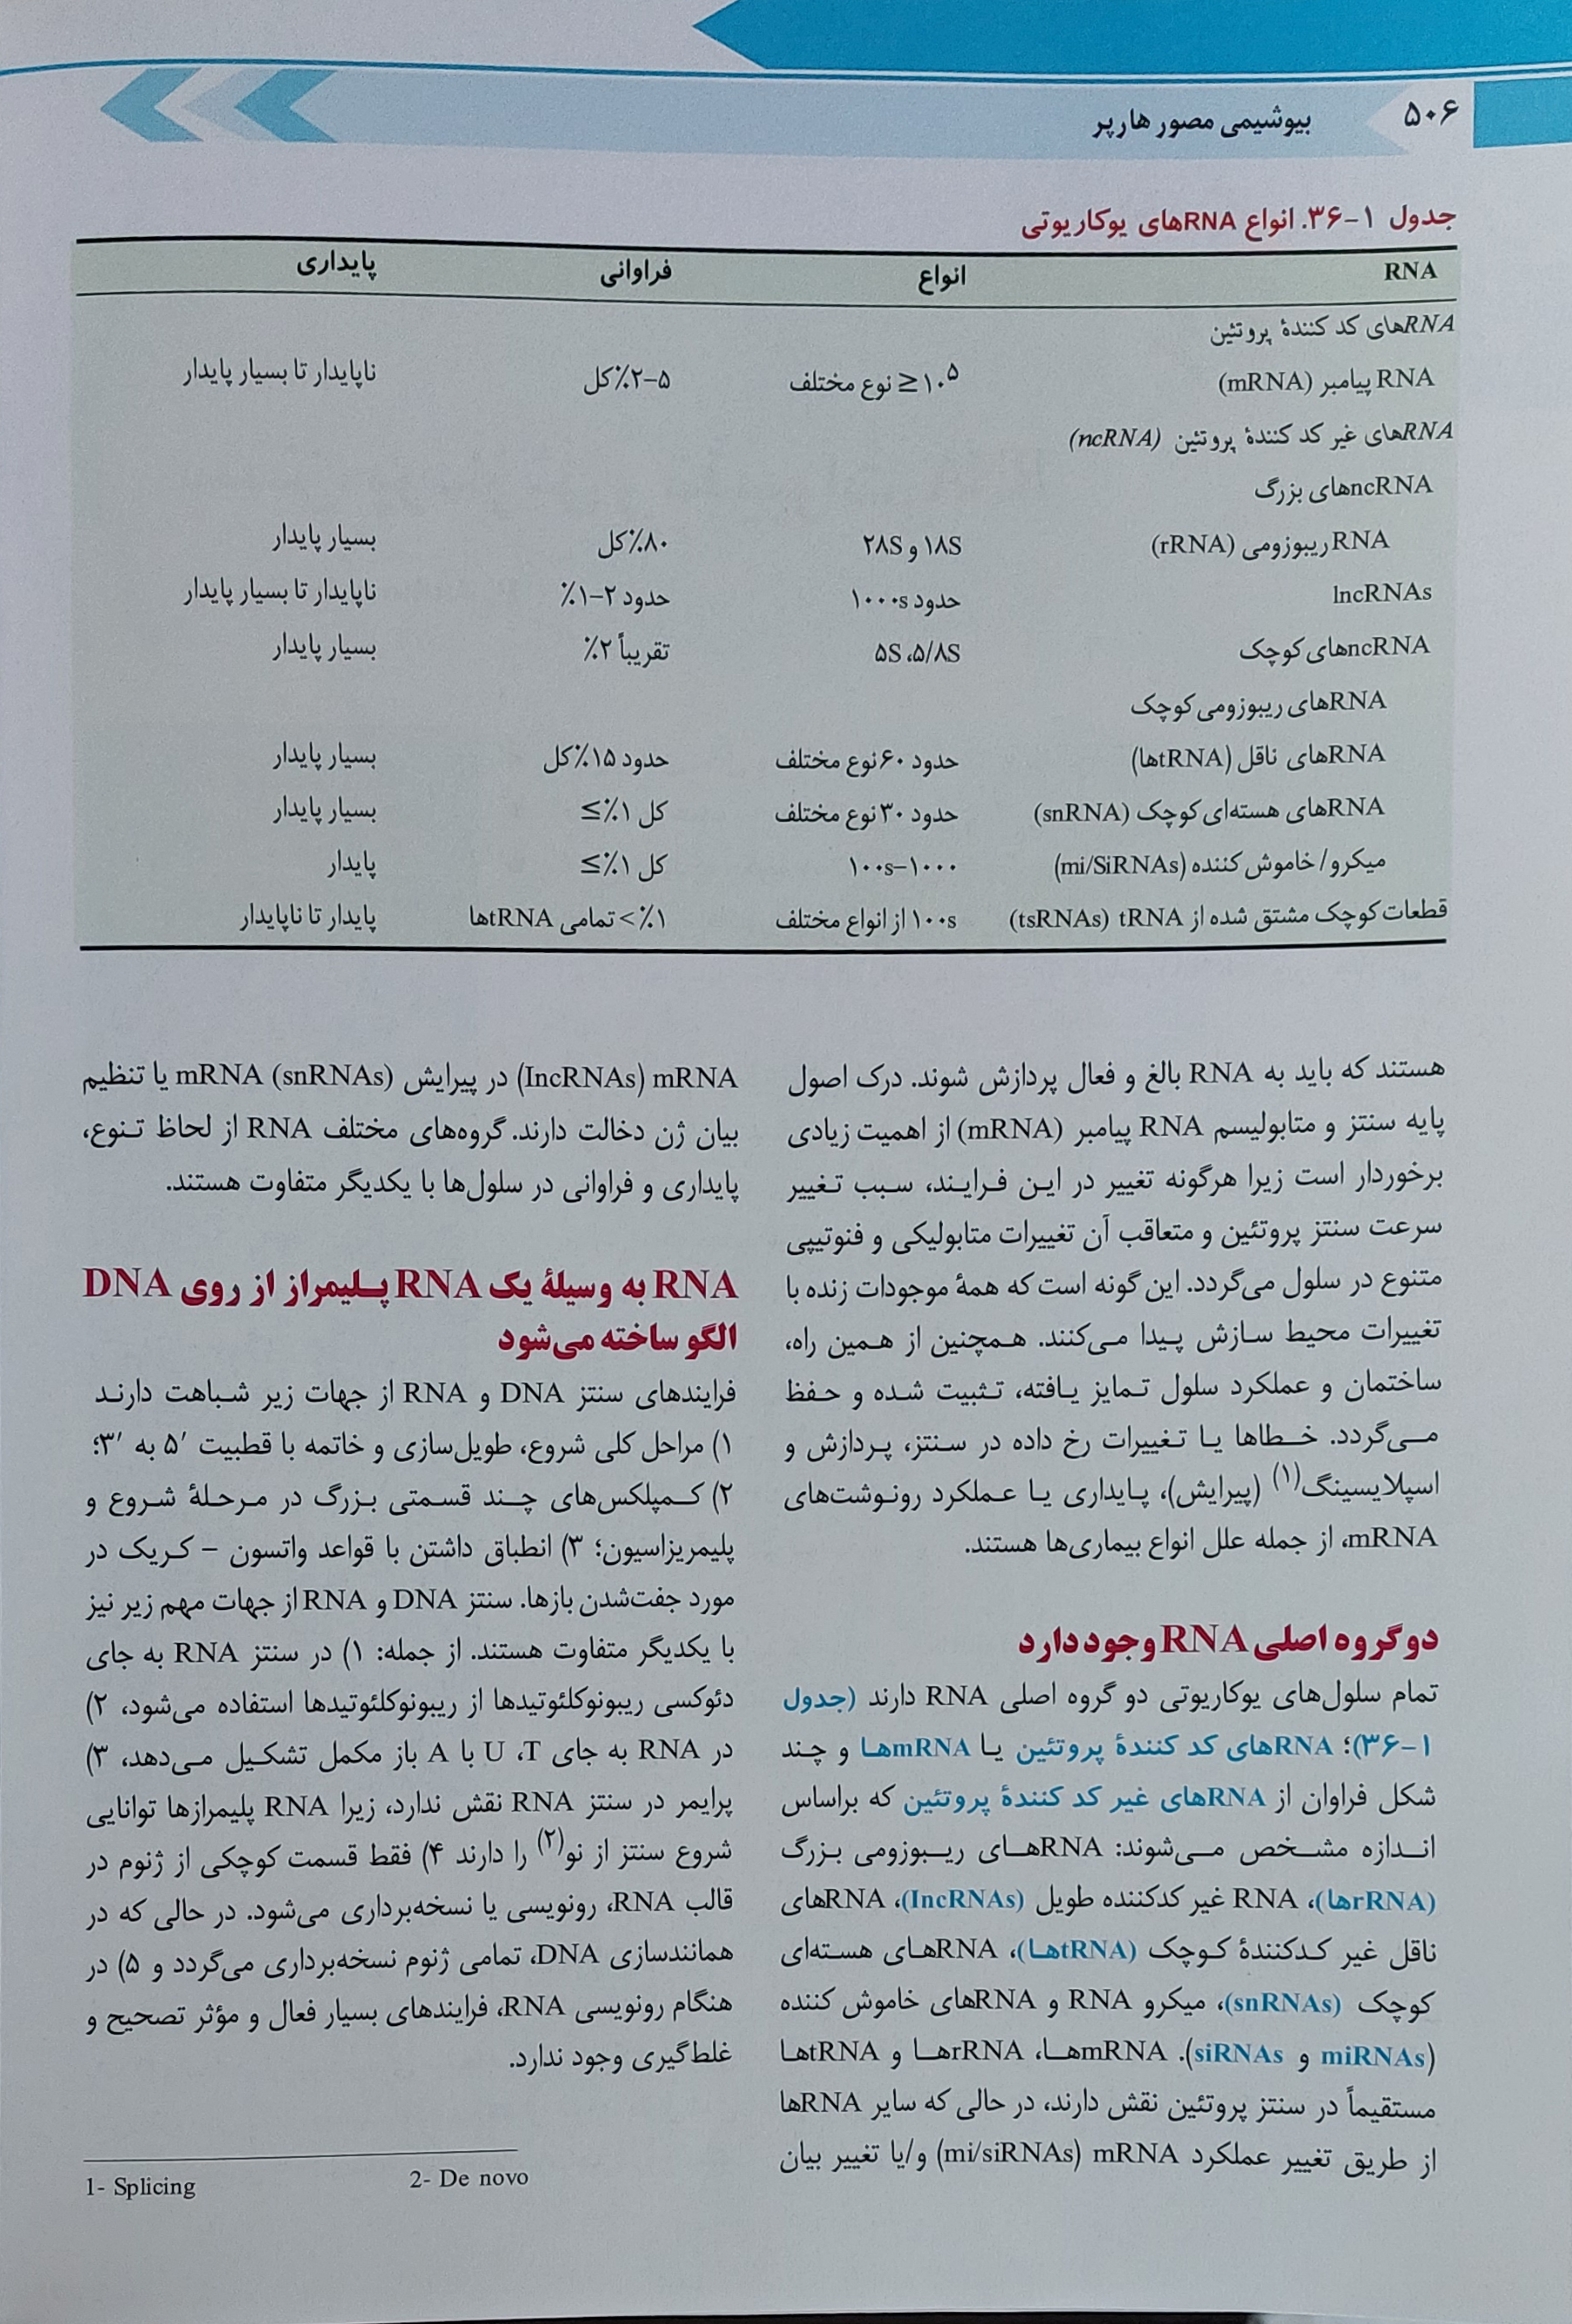 ۵۰۶
بیوشیمی مصور هارپر
جدول ۱-۳۶. انواع RNAهای یوکاریوتی
RNA انواع فراوانی پایداری
RNAهای کد کنندهٔ پروتئین
RNA پیامبر (mRNA) ≥۱۰^۵ نوع مختلف ۲-۵٪ کل ناپایدار تا بسیار پایدار
RNAهای غیر کد کنندهٔ پروتئین (ncRNA)
ncRNAهای بزرگ
RNA ریبوزومی (rRNA) ۱۸S و ۲۸S ۸۰٪ کل بسیار پایدار
lncRNAs حدود ۱۰۰۰s حدود ۲-۱٪ ناپایدار تا بسیار پایدار
ncRNAهای کوچک ۵/۸S، ۵S تقریباً ۲٪ بسیار پایدار
RNAهای ریبوزومی کوچک
RNAهای ناقل (tRNAها) حدود ۶۰ نوع مختلف حدود ۱۵٪ کل بسیار پایدار
RNAهای هسته‌ای کوچک (snRNA) حدود ۳۰ نوع مختلف کل ۱٪≥ بسیار پایدار
میکرو/ خاموش کننده (mi/SiRNAs) ۱۰۰s-۱۰۰۰ کل ۱٪≥ پایدار
قطعات کوچک مشتق شده از tRNA (tsRNAs) ۱۰۰s از انواع مختلف ۱٪> تمامی tRNAها پایدار تا ناپایدار
هستند که باید به RNA بالغ و فعال پردازش شوند. درک اصول
پایه سنتز و متابولیسم RNA پیامبر (mRNA) از اهمیت زیادی
برخوردار است زیرا هرگونه تغییر در این فرایند، سبب تغییر
سرعت سنتز پروتئین و متعاقب آن تغییرات متابولیکی و فنوتیپی
متنوع در سلول می‌گردد. این گونه است که همهٔ موجودات زنده با
تغییرات محیط سازش پیدا می‌کنند. همچنین از همین راه،
ساختمان و عملکرد سلول تمایز یافته، تثبیت شده و حفظ
می‌گردد. خطاها یا تغییرات رخ داده در سنتز، پردازش و
اسپلایسینگ(۱) (پیرایش)، پایداری یا عملکرد رونوشت‌های
mRNA، از جمله علل انواع بیماری‌ها هستند.
دو گروه اصلی RNA وجود دارد
تمام سلول‌های یوکاریوتی دو گروه اصلی RNA دارند (جدول
۱-۳۶)؛ RNAهای کد کنندهٔ پروتئین یا mRNAها و چند
شکل فراوان از RNAهای غیر کد کنندهٔ پروتئین که براساس
اندازه مشخص می‌شوند: RNAهای ریبوزومی بزرگ
(rRNAها)، RNA غیر کدکننده طویل (lncRNAs)، RNAهای
ناقل غیر کدکنندهٔ کوچک (tRNAها)، RNAهای هسته‌ای
کوچک (snRNAs)، میکرو RNA و RNAهای خاموش کننده
(miRNAs و siRNAs). mRNAها، rRNAها و tRNAها
مستقیماً در سنتز پروتئین نقش دارند، در حالی که سایر RNAها
از طریق تغییر عملکرد mRNA (mi/siRNAs) و/یا تغییر بیان
mRNA (lncRNAs) در پیرایش mRNA (snRNAs) یا تنظیم
بیان ژن دخالت دارند. گروه‌های مختلف RNA از لحاظ تنوع،
پایداری و فراوانی در سلول‌ها با یکدیگر متفاوت هستند.
RNA به وسیلهٔ یک RNA پلیمراز از روی DNA
الگو ساخته می‌شود
فرایندهای سنتز DNA و RNA از جهات زیر شباهت دارند
۱) مراحل کلی شروع، طویل‌سازی و خاتمه با قطبیت ′۵ به ′۳؛
۲) کمپلکس‌های چند قسمتی بزرگ در مرحلهٔ شروع و
پلیمریزاسیون؛ ۳) انطباق داشتن با قواعد واتسون – کریک در
مورد جفت‌شدن بازها. سنتز DNA و RNA از جهات مهم زیر نیز
با یکدیگر متفاوت هستند. از جمله: ۱) در سنتز RNA به جای
دئوکسی ریبونوکلئوتیدها از ریبونوکلئوتیدها استفاده می‌شود، ۲)
در RNA به جای T، U با A باز مکمل تشکیل می‌دهد، ۳)
پرایمر در سنتز RNA نقش ندارد، زیرا RNA پلیمرازها توانایی
شروع سنتز از نو(۲) را دارند ۴) فقط قسمت کوچکی از ژنوم در
قالب RNA، رونویسی یا نسخه‌برداری می‌شود. در حالی که در
همانندسازی DNA، تمامی ژنوم نسخه‌برداری می‌گردد و ۵) در
هنگام رونویسی RNA، فرایندهای بسیار فعال و مؤثر تصحیح و
غلط‌گیری وجود ندارد.
1- Splicing 2- De novo